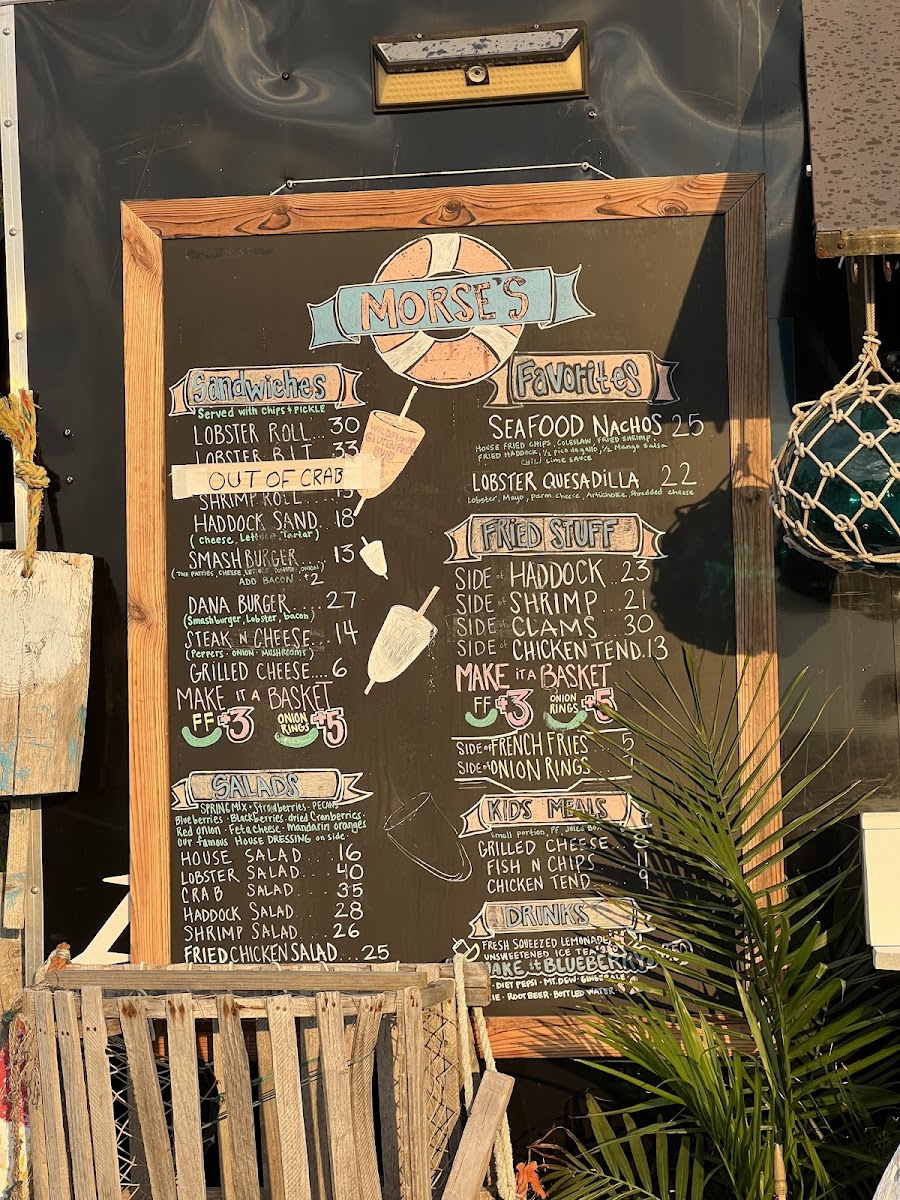 MORSE'S
Sandwiches
Served with chips & PICKLE
LOBSTER ROLL... 30
LOBSTER B.L.T... 33
OUT OF CRAB
SHRIMP ROLL....
HADDOCK SAND. 18
(cheese, Lettuce, Tartar)
SMASHBURGER.... 13
(TWO PATTIES, CHEESE, LETTUCE, TOMATO, ONION)
ADD BACON +2
DANA BURGER..... 27
(Smashburger, Lobster, bacon)
STEAK N CHEESE... 14
(PEPPERS - ONION - MUSHROOMS)
GRILLED CHEESE.... 6
MAKE IT A BASKET
FF +3 ONION RINGS +5
SALADS
SPRING MIX - Strawberries - PECANS
Blueberries - Blackberries - dried Cranberries -
Red onion - Feta cheese - Mandarin oranges
our famous HOUSE DRESSING on side -
HOUSE SALAD.... 16
LOBSTER SALAD... 40
CRAB SALAD... 35
HADDOCK SALAD... 28
SHRIMP SALAD... 26
FRIED CHICKEN SALAD... 25
FAVORITES
SEAFOOD NACHOS 25
HOUSE FRIED CHIPS, COLESLAW, FRIED SHRIMP,
FRIED HADDOCK, 1/2 PICO de gallo, 1/2 Mango Salsa
CHILI Lime SAUCE
LOBSTER QUESADILLA 22
Lobster, Mayo, Parm cheese, Artichoke, Shredded cheese
FRIED STUFF
SIDE of HADDOCK.. 23
SIDE of SHRIMP... 21
SIDE of CLAMS 30
SIDE of CHICKEN TEND. 13
MAKE IT A BASKET
FF +3 ONION RINGS +5
SIDE of FRENCH FRIES... 5
SIDE of ONION RINGS...
KIDS MEALS
small portion, FF JUICE BOX
GRILLED CHEESE.... 8
FISH N CHIPS.... 11
CHICKEN TEND... 9
DRINKS
FRESH SQUEEZED LEMONADE
UNSWEETENED ICE TEA
MAKE it BLUEBERRY
DIET PEPSI - MT. DEW - GINGERALE
ROOT BEER - BOTTLED WATER